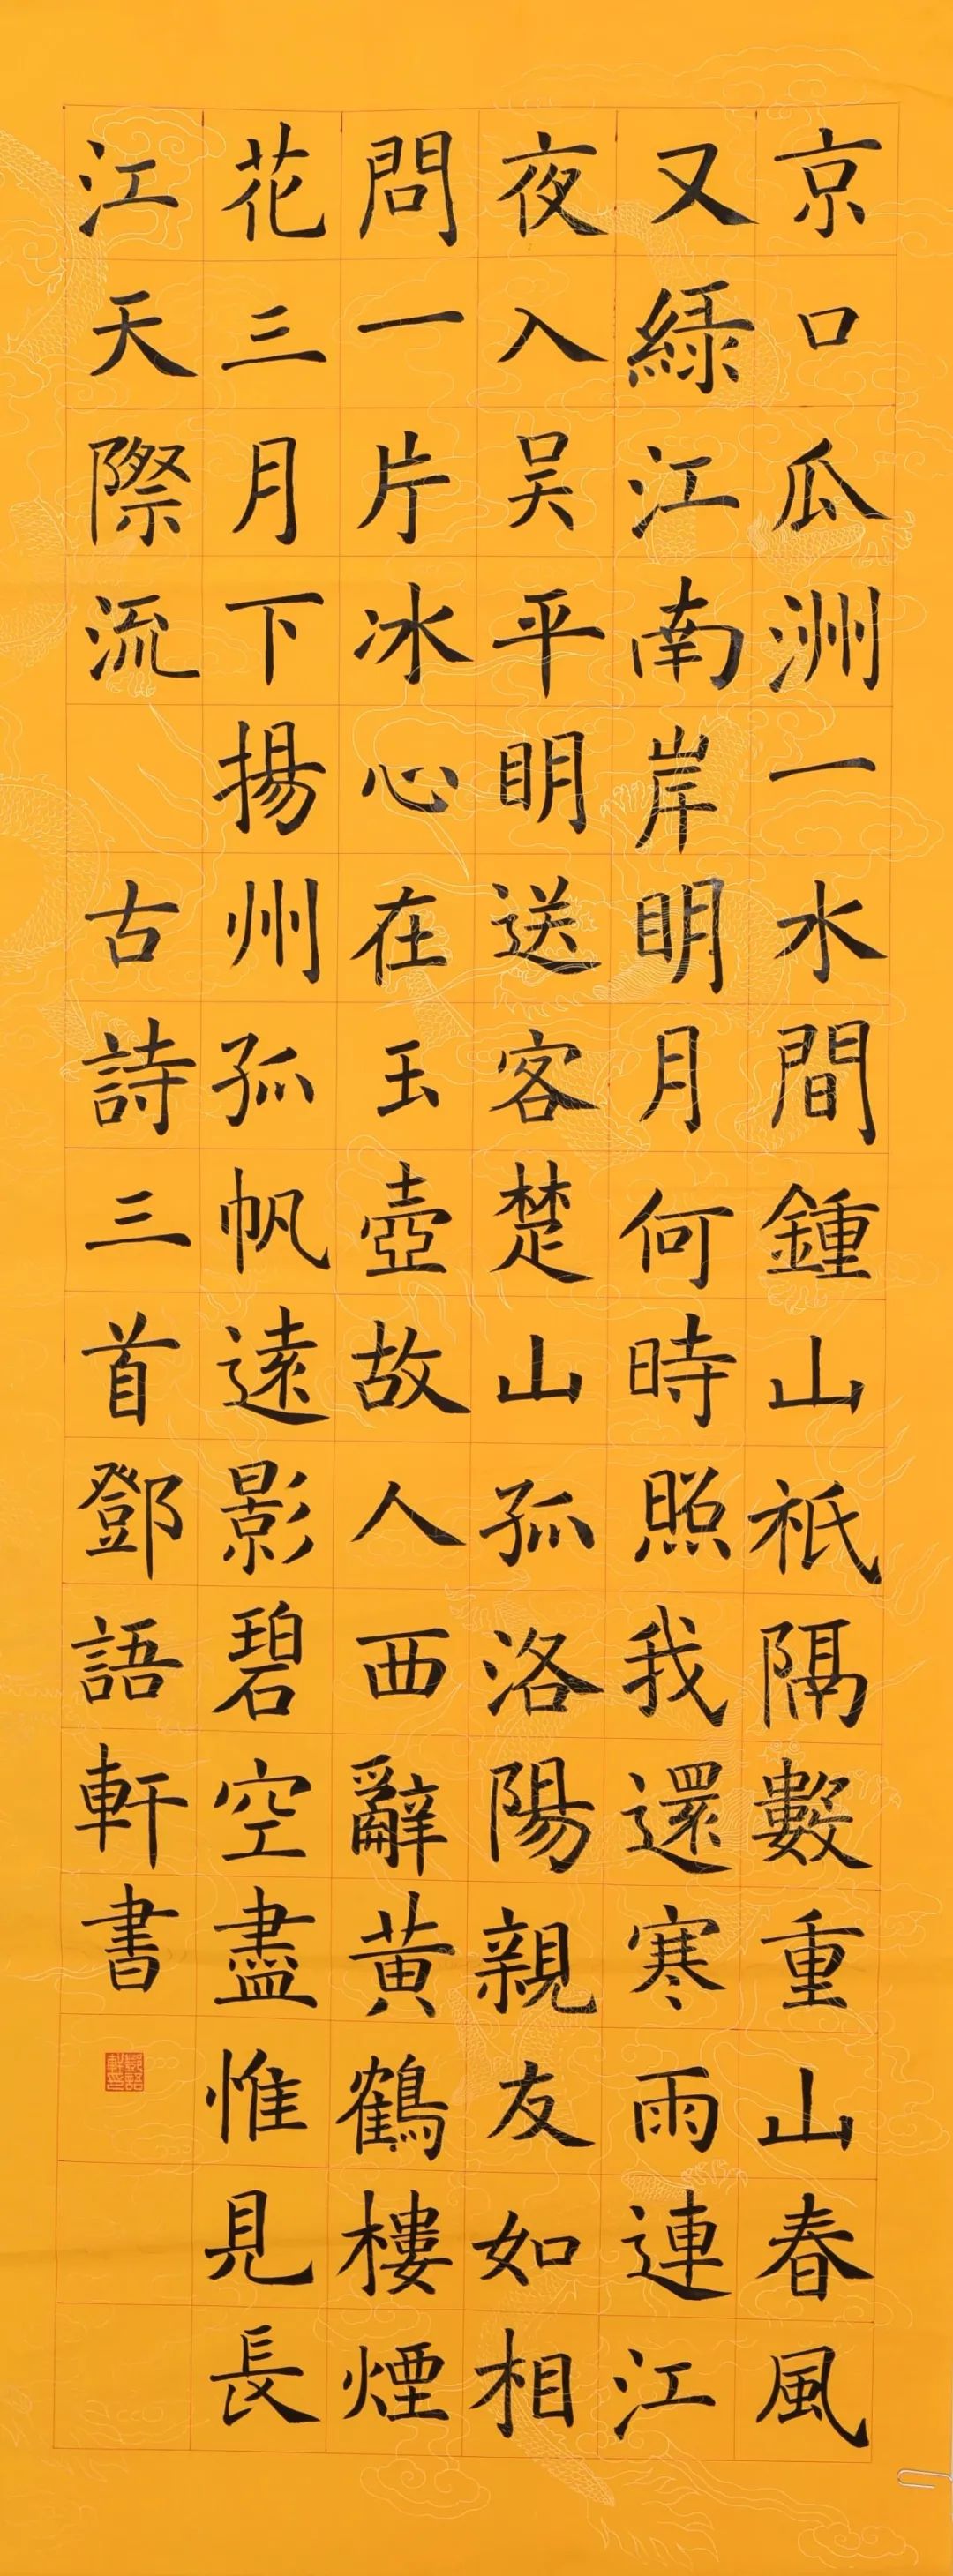 京口瓜洲一水間鍾山祇隔數重山春風
又緑江南岸明月何時照我還寒雨連江
夜入吴平明送客楚山孤洛陽親友如相
問一片冰心在玉壺故人西辭黃鶴樓煙
花三月下揚州孤帆遠影碧空盡惟見長
江天際流 古詩三首鄧語軒書